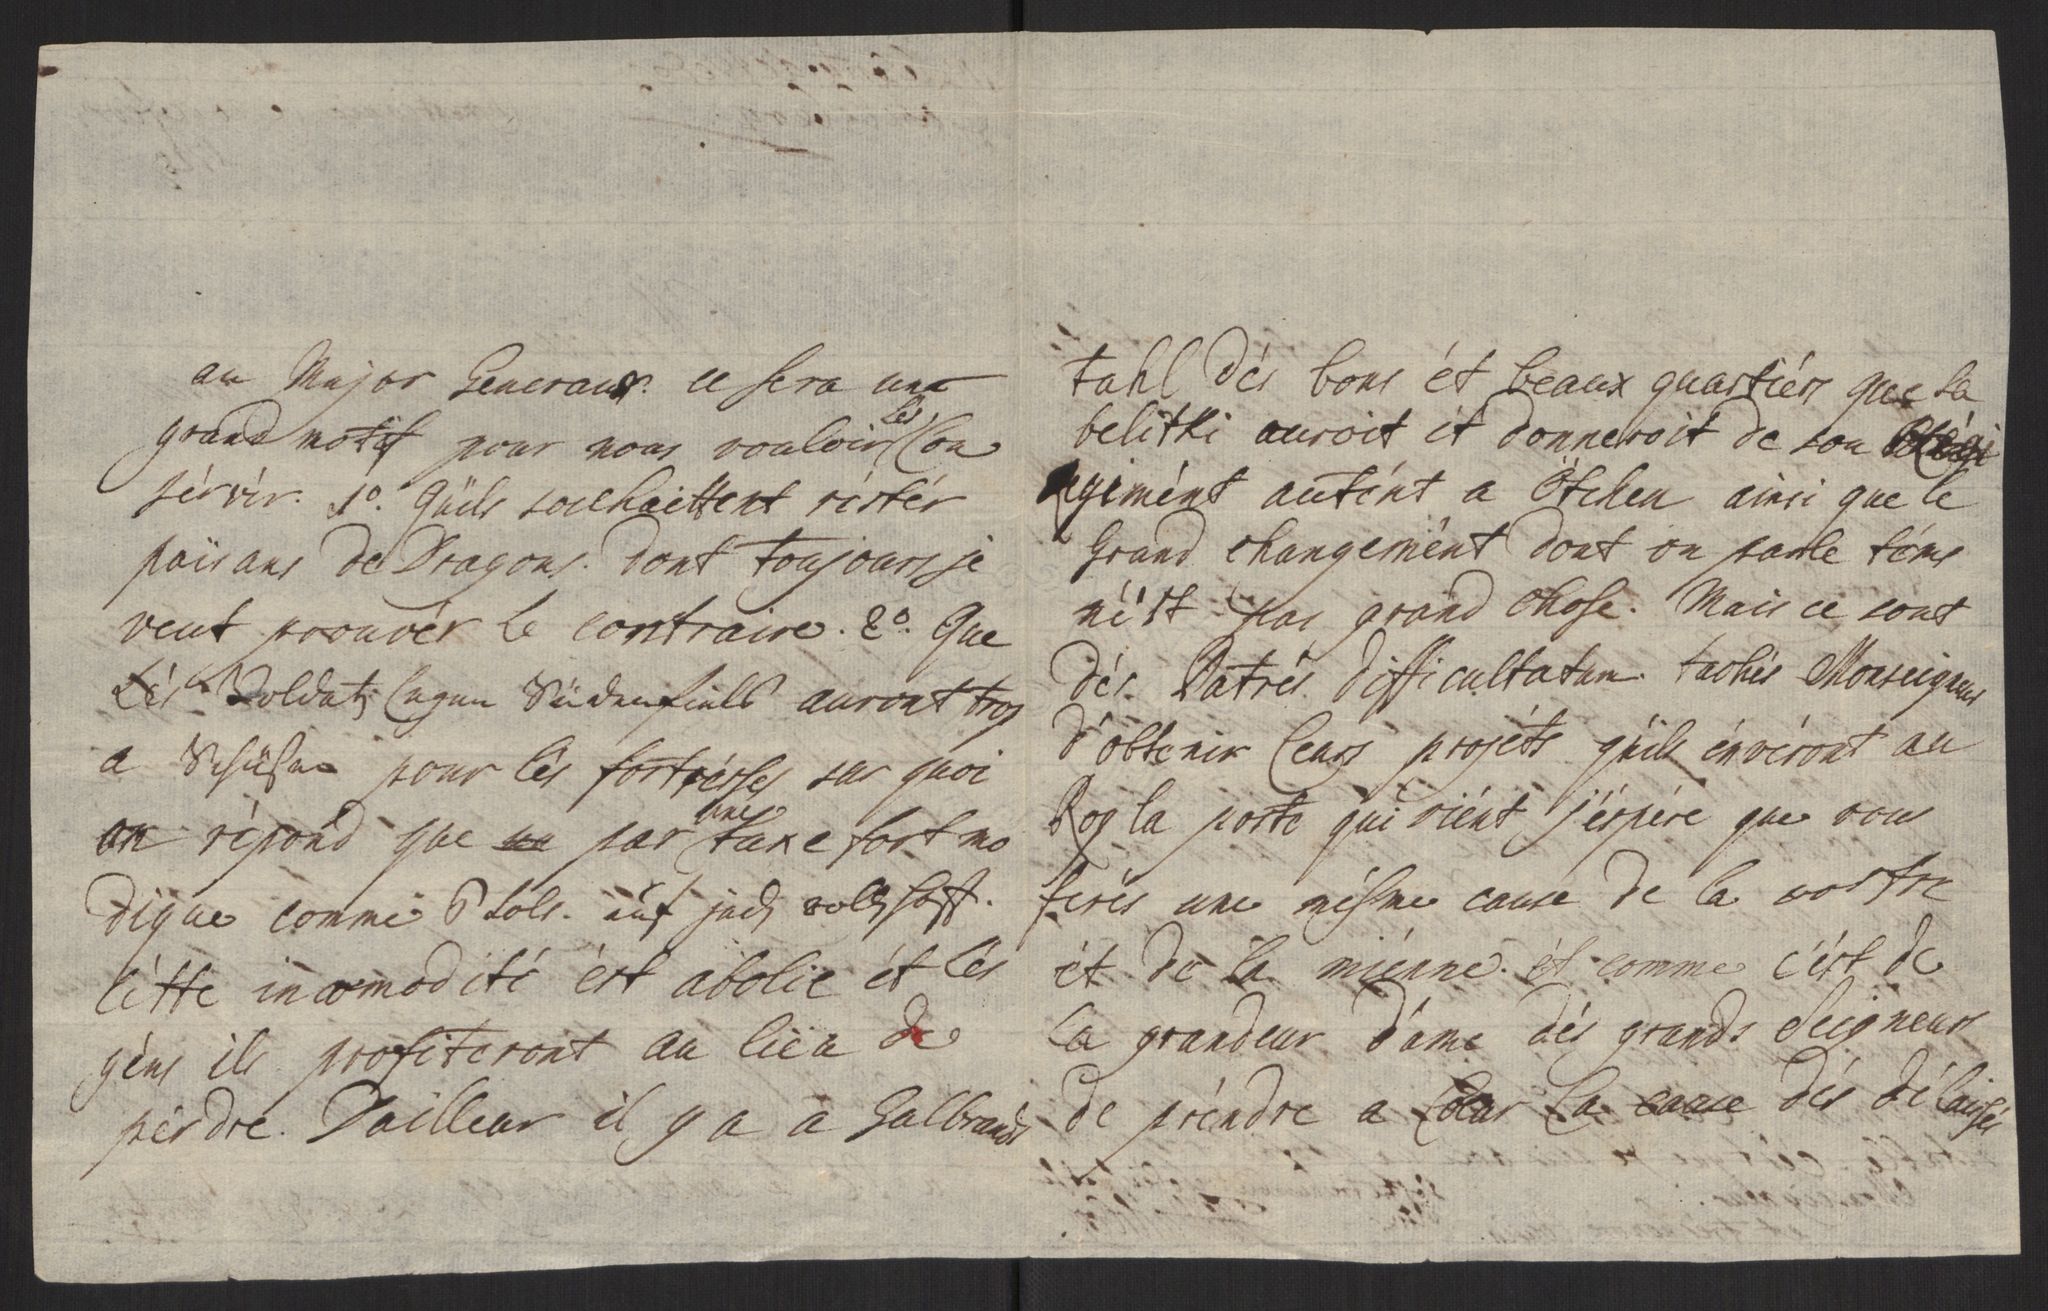 au Major Generaux. ce sera une
grand motif pour nous vouloir les Con
sérvir. 1º. Qüils souhaittent réstér
païsans de Dragons. dont toujours je
veut prouvér le contraire. 2º. Que
Lés Soldats auront trop
a pour lés fortrésses sur quoi
on répond que par une taxe fort mo
dique comme 6 sols.
Cétte incomodité ést abolie ét lés
géns ils profiteront au lieu de
pérdre. D'ailleur il y a a Gulbrands
tahl dés bons ét beaux quartiérs que Sa
belitki auroit ét donneroit de son Régi
giment autént a Ötchen ainsi que le
Grand changemént dont on parle téms
n'ést pas grand chose. Mais ce sont
dés Patrés difficultatum. tachés Monseigneur
d'obtenir leurs projéts qüils énvéront au
Roy la poste qui viént j'éspére que vous
ferés une mésme cause de la vostre
ét de la miénne. ét comme c'ést de
la grandeur d'ame dés grands Seigneurs
de préndre a Coeur la cause dés délaissés